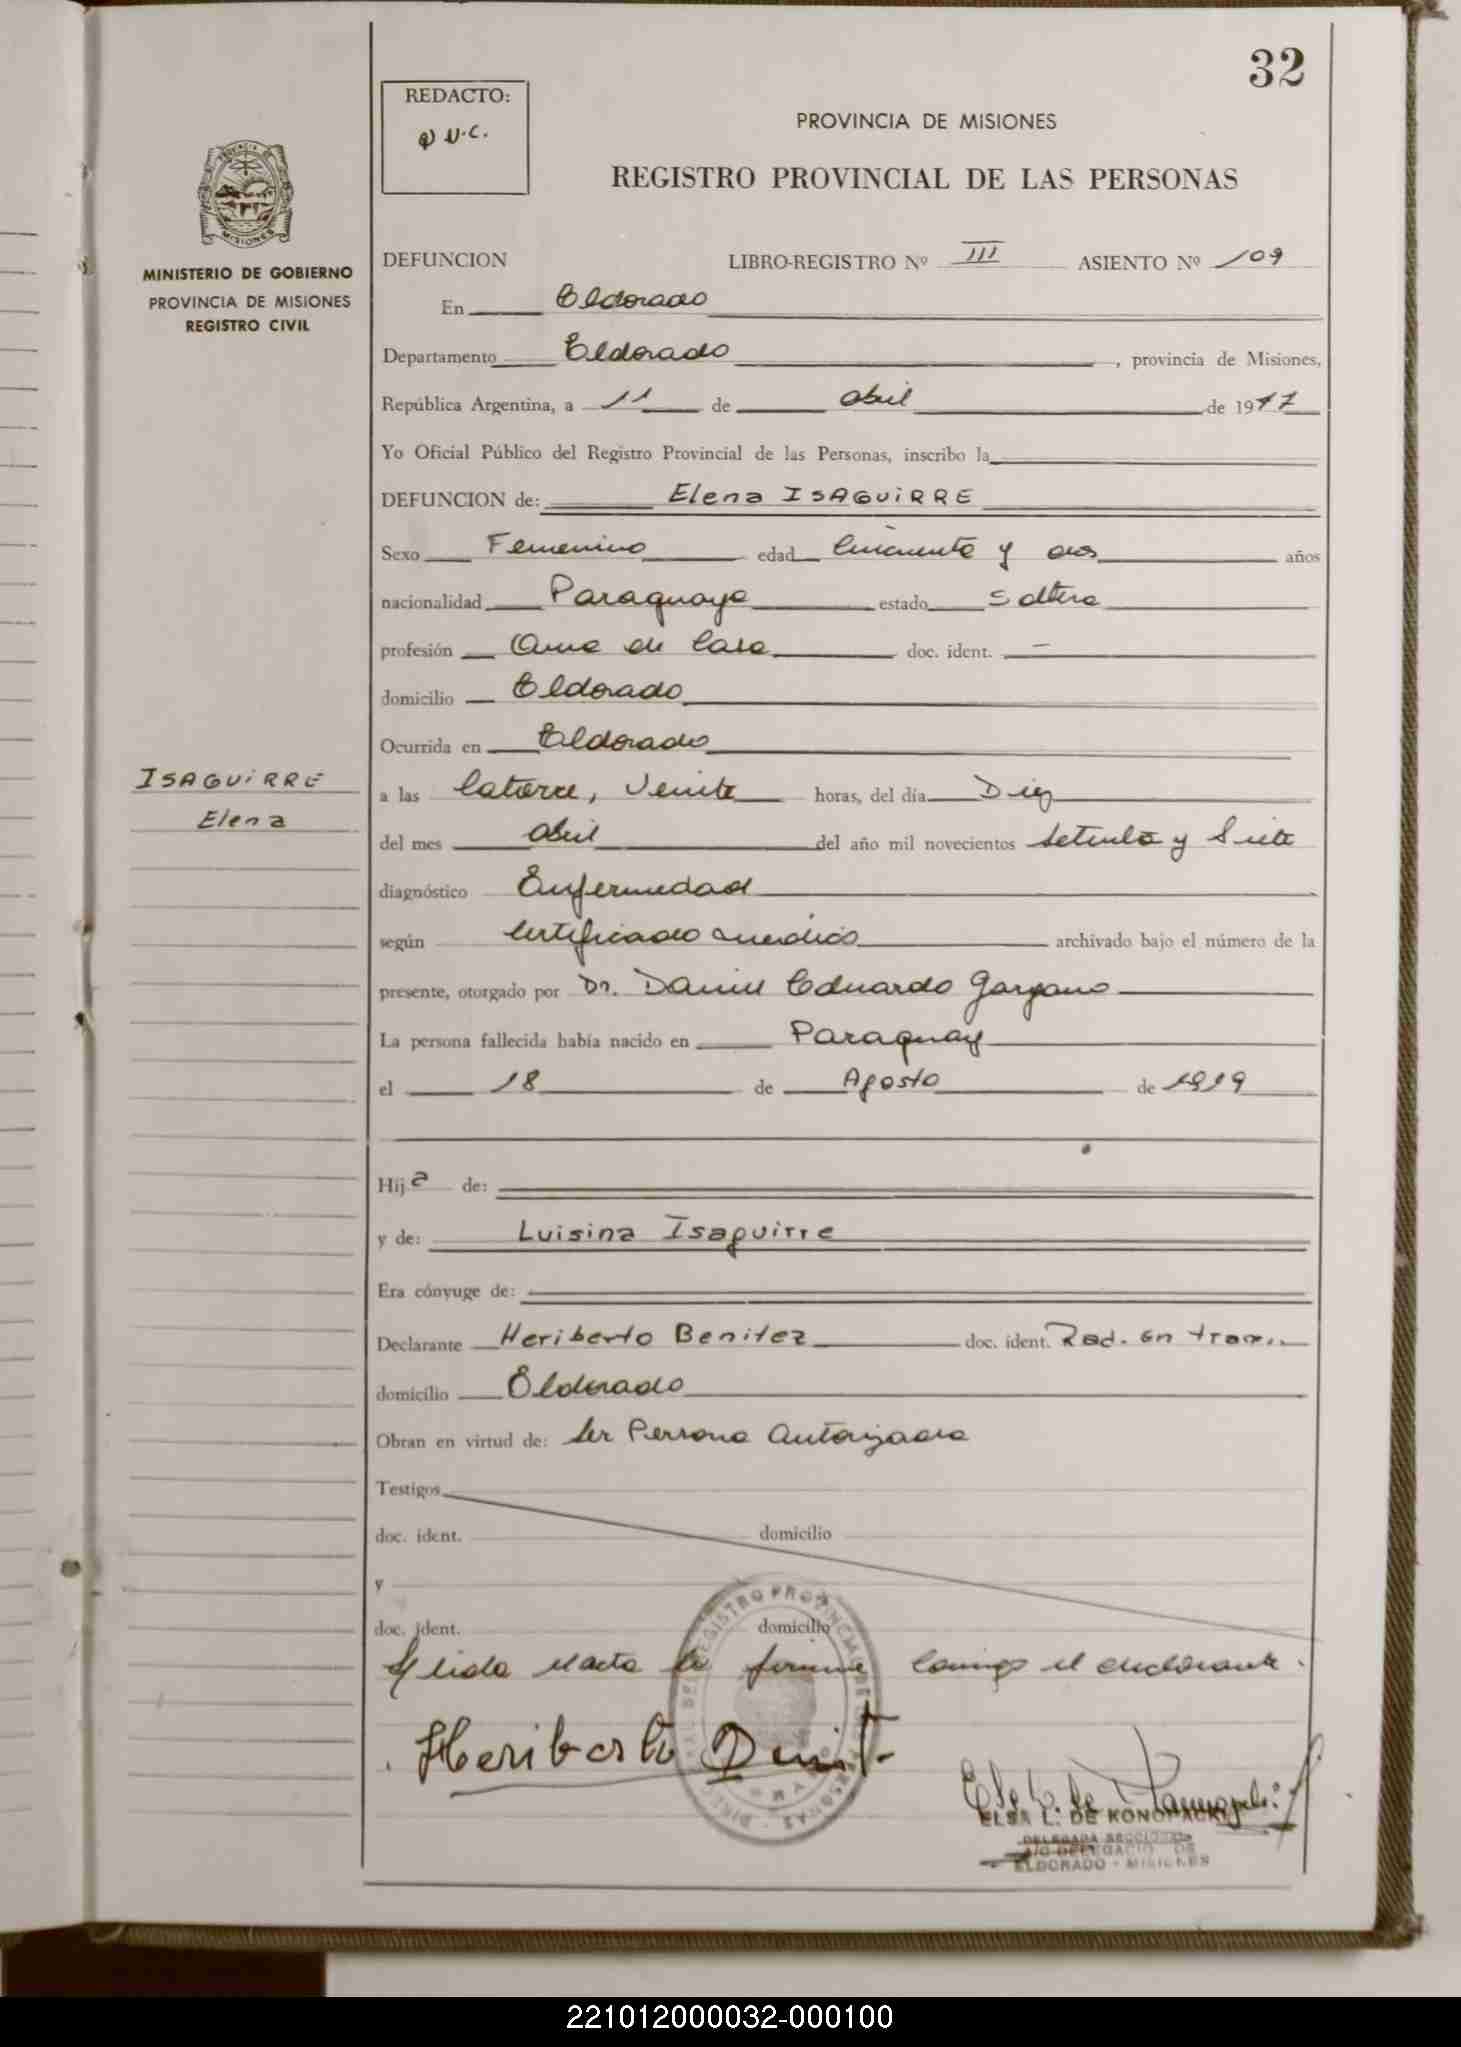 32
REDACTO:
PROVINCIA DE MISIONES
REGISTRO PROVINCIAL DE LAS PERSONAS
MINISTERIO DE GOBIERNO
PROVINCIA DE MISIONES
REGISTRO CIVIL
DEFUNCION LIBRO-REGISTRO Nº III ASIENTO Nº 109
En Eldorado
Departamento Eldorado, provincia de Misiones,
República Argentina, a 11 de abril de 1977
Yo Oficial Público del Registro Provincial de las Personas, inscribo la
DEFUNCION de: Elena ISAGUiRRE
Sexo Femenino edad Cincuenta y dos años
nacionalidad Paraguaya estado Soltera
profesión Ama de Casa doc. ident. —
domicilio Eldorado
Ocurrida en Eldorado
ISAGUiRRE
Elena
a las Catorce, Veinte horas, del día Diez
del mes abril del año mil novecientos Setenta y Siete
diagnóstico Enfermedad
según Certificado medico archivado bajo el número de la
presente, otorgado por Dr. Daniel Eduardo Gargano
La persona fallecida había nacido en Paraguay
el 18 de Agosto de 1919
Hija de:
y de: Luisina Isaguirre
Era cónyuge de:
Declarante Heriberto Benitez doc. ident. Rad. en tram..
domicilio Eldorado
Obran en virtud de: Ser Persona Autorizada
Testigos
doc. ident. domicilio
y
doc. ident. domicilio
leida el acta la firma conmigo el declarante.
Heriberto
ELSA L. DE KONOPACKI
DELEGADA SECCIONAL
A/C DELEGACIO DE
ELDORADO - MISIONES
221012000032-000100